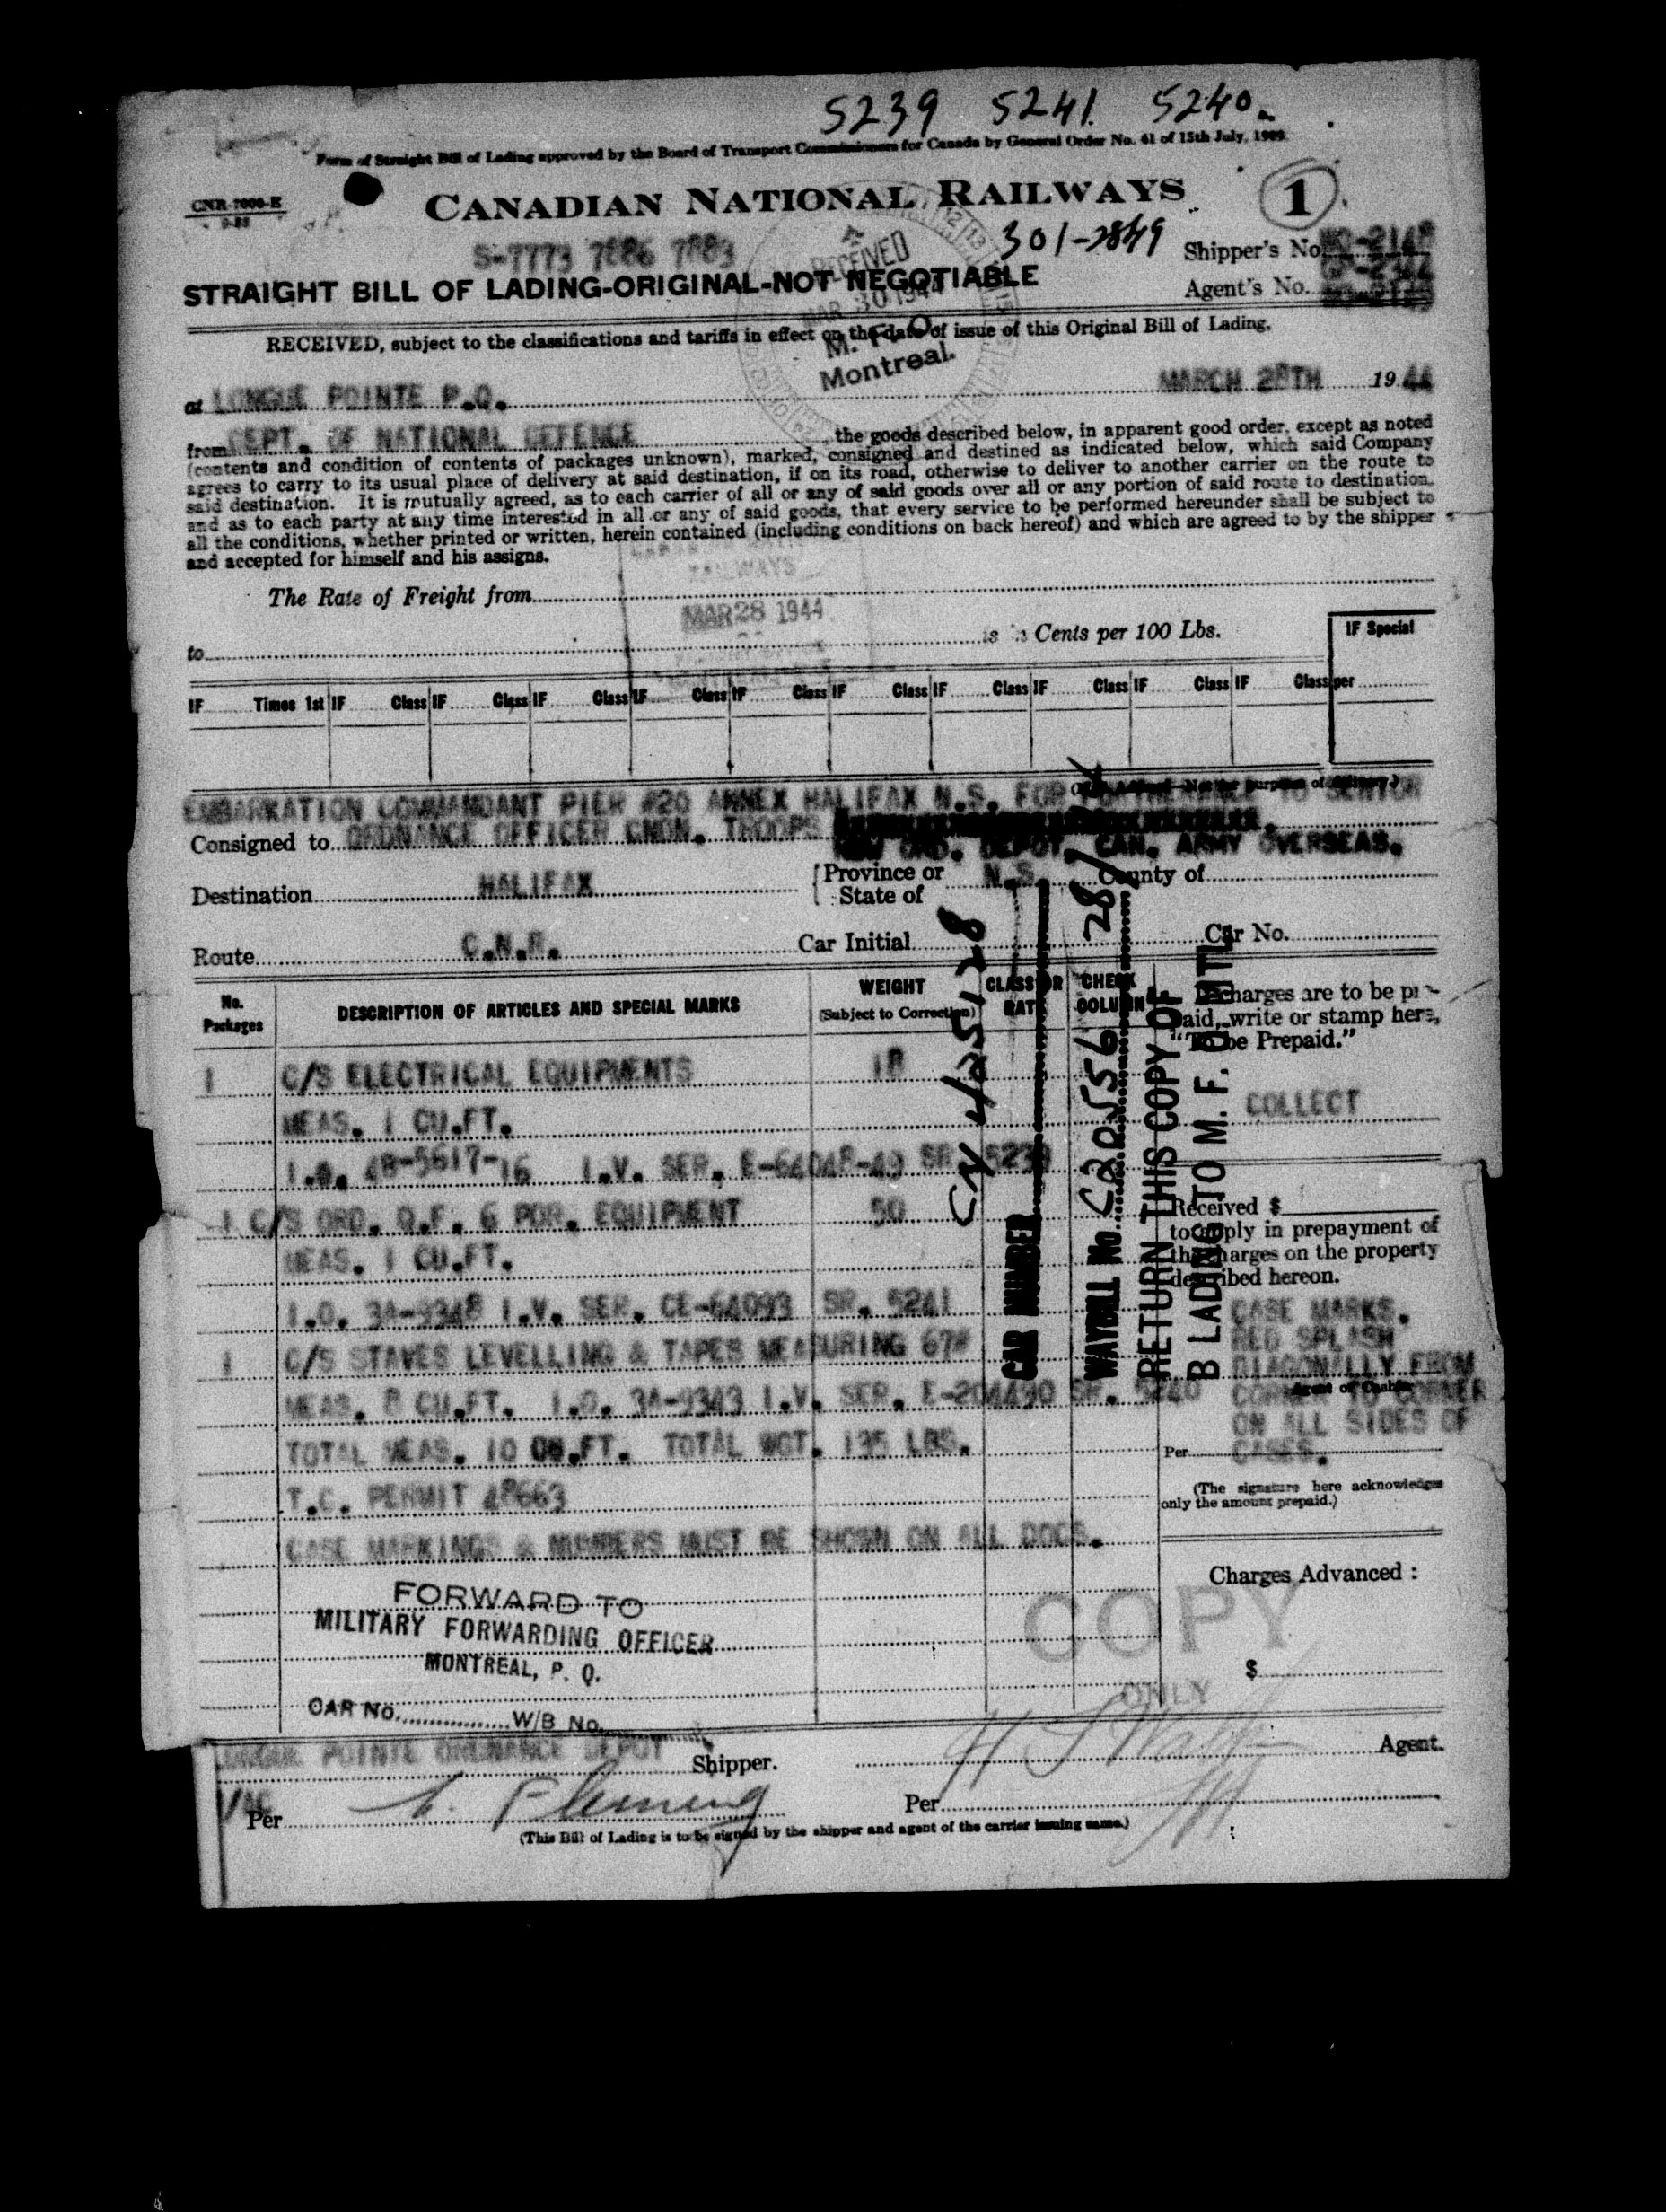 5239 5241. 5240.
Form of Straight Bill of Lading approved by the Board of Transport Commissioners for Canada by General Order No. 61 of 15th July, 1909
CNR-7000-E
CANADIAN NATIONAL RAILWAYS
1
301-2849
S-7773 7886 7883
Shipper's No.
STRAIGHT BILL OF LADING-ORIGINAL-NOT NEGOTIABLE
Agent's No.
RECEIVED
MAR 30 1944
M. F. O.
Montreal.
RECEIVED, subject to the classifications and tariffs in effect on the date of issue of this Original Bill of Lading,
at LONGUE POINTE P.Q. MARCH 28TH 1944
from DEPT. OF NATIONAL DEFENCE the goods described below, in apparent good order, except as noted
(contents and condition of contents of packages unknown), marked, consigned and destined as indicated below, which said Company
agrees to carry to its usual place of delivery at said destination, if on its road, otherwise to deliver to another carrier on the route to
said destination. It is mutually agreed, as to each carrier of all or any of said goods over all or any portion of said route to destination,
and as to each party at any time interested in all or any of said goods, that every service to be performed hereunder shall be subject to
all the conditions, whether printed or written, herein contained (including conditions on back hereof) and which are agreed to by the shipper
and accepted for himself and his assigns.
RAILWAYS
MAR 28 1944
The Rate of Freight from
to is in Cents per 100 Lbs.
IF Special
IF Times 1st IF Class IF Class IF Class IF Class IF Class IF Class IF Class IF Class IF Class IF Class per
EMBARKATION COMMANDANT PIER #20 ANNEX HALIFAX N.S. FOR FURTHERANCE TO SENIOR
Consigned to ORDNANCE OFFICER CNDN. TROOPS
ORD. DEPOT, CAN. ARMY OVERSEAS.
Destination HALIFAX Province or State of N.S. County of
Route C.N.R. Car Initial Car No.
No. Packages DESCRIPTION OF ARTICLES AND SPECIAL MARKS WEIGHT (Subject to Correction) CLASS OR RATE CHECK COLUMN
If charges are to be pre-
paid, write or stamp here,
"To be Prepaid."
COLLECT
1 C/S ELECTRICAL EQUIPMENTS 18
MEAS. 1 CU.FT.
I.O. 4B-5617-16 I.V. SER. E-64048-49 SR. 5239
1 C/S ORD. Q.F. 6 PDR. EQUIPMENT 50
MEAS. 1 CU.FT.
I.O. 3A-9348 I.V. SER. CE-64093 SR. 5241
1 C/S STAVES LEVELLING & TAPES MEASURING 67#
MEAS. 8 CU.FT. I.O. 3A-9343 I.V. SER. E-204490 SR. 5240
TOTAL MEAS. 10 CU.FT. TOTAL WGT. 135 LBS.
T.C. PERMIT 48663
CASE MARKINGS & NUMBERS MUST BE SHOWN ON ALL DOCS.
CAR NUMBER CN 425128
WAYBILL No. C20556 28/
RETURN THIS COPY OF
B LADING TO M. F. O MTL
Received $
to apply in prepayment of
the charges on the property
described hereon.
CASE MARKS.
RED SPLASH
DIAGONALLY FROM
Agent or Cashier
CORNER TO CORNER
ON ALL SIDES OF
Per CASES.
(The signature here acknowledges
only the amount prepaid.)
Charges Advanced :
$
COPY
ONLY
FORWARD TO
MILITARY FORWARDING OFFICER
MONTREAL, P. Q.
CAR No. W/B No.
LONGUE POINTE ORDNANCE DEPOT Shipper. Agent.
Per Fleming Per
(This Bill of Lading is to be signed by the shipper and agent of the carrier issuing same.)